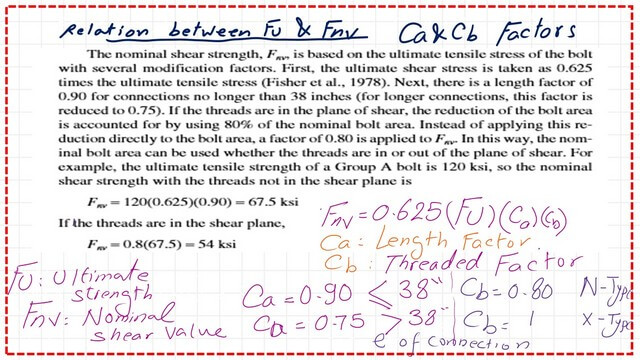 Relation between FU & Fnv Ca & Cb Factors
The nominal shear strength, Fnv, is based on the ultimate tensile stress of the bolt
with several modification factors. First, the ultimate shear stress is taken as 0.625
times the ultimate tensile stress (Fisher et al., 1978). Next, there is a length factor of
0.90 for connections no longer than 38 inches (for longer connections, this factor is
reduced to 0.75). If the threads are in the plane of shear, the reduction of the bolt area
is accounted for by using 80% of the nominal bolt area. Instead of applying this re-
duction directly to the bolt area, a factor of 0.80 is applied to Fnv. In this way, the nom-
inal bolt area can be used whether the threads are in or out of the plane of shear. For
example, the ultimate tensile strength of a Group A bolt is 120 ksi, so the nominal
shear strength with the threads not in the shear plane is
Fnv = 120(0.625)(0.90) = 67.5 ksi
If the threads are in the shear plane,
Fnv = 0.8(67.5) = 54 ksi
Fnv = 0.625 (FU) (Ca) (Cb)
Ca: Length Factor.
Cb: Threaded Factor
FU: Ultimate
strength
Fnv: Nominal
shear value
Ca = 0.90 ≤ 38"
Ca = 0.75 > 38"
ℓ of connection
Cb = 0.80 N-Type
Cb = 1 X-Type